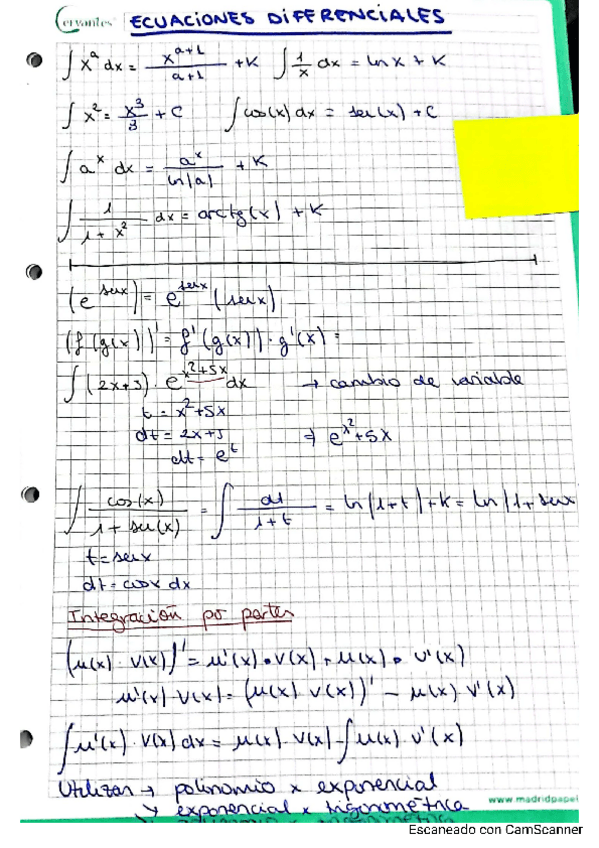 Cervantes ECUACIONES DIFERENCIALES
∫ x^a dx = x^(a+1)/(a+1) + K   ∫ 1/x dx = ln x + K
∫ x² = x³/3 + C   ∫ cos(x) dx = sen(x) + C
∫ a^x dx = a^x/ln|a| + K
∫ 1/(1 + x²) dx = arctg(x) + K
(e^senx) = e^senx (senx)
(f(g(x))' = f'(g(x)) · g'(x) =
∫ (2x+5) · e^(x²+5x) dx → cambio de variable
t = x²+5x
dt = 2x+5 ⇒ e^x²+5x
dt = e^t
∫ cos(x)/(1 + sen(x)) = ∫ dt/(1+t) = ln|1+t| + K = ln|1+senx
t = senx
dt = cosx dx
Integración por partes
(u(x) · v(x))' = u'(x) · v(x) + u(x) · v'(x)
u'(x) · v(x) = (u(x) · v(x))' - u(x) · v'(x)
∫ u'(x) · v(x) dx = u(x) · v(x) - ∫ u(x) · v'(x)
Utilizar → polinomio x exponencial
www.madridpapel
↘ exponencial x trigonométrica
Escaneado con CamScanner